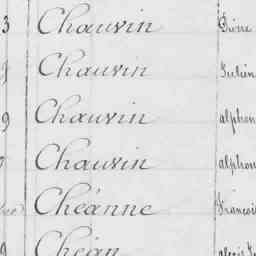 3 Chauvin Pierre
Chauvin Julien
9 Chauvin alphon
Chauvin alphon
Chéanne François
9 Chéan alexis